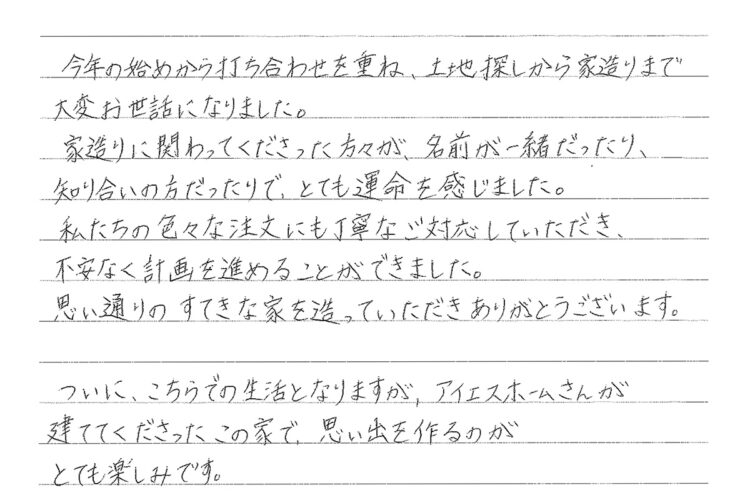 今年の始めから打ち合わせを重ね、土地探しから家造りまで
大変お世話になりました。
家造りに関わってくださった方々が、名前が一緒だったり、
知り合いの方だったりで、とても運命を感じました。
私たちの色々な注文にも丁寧なご対応していただき、
不安なく計画を進めることができました。
思い通りのすてきな家を造っていただきありがとうございます。
ついに、こちらでの生活となりますが、アイエスホームさんが
建ててくださったこの家で、思い出を作るのが
とても楽しみです。